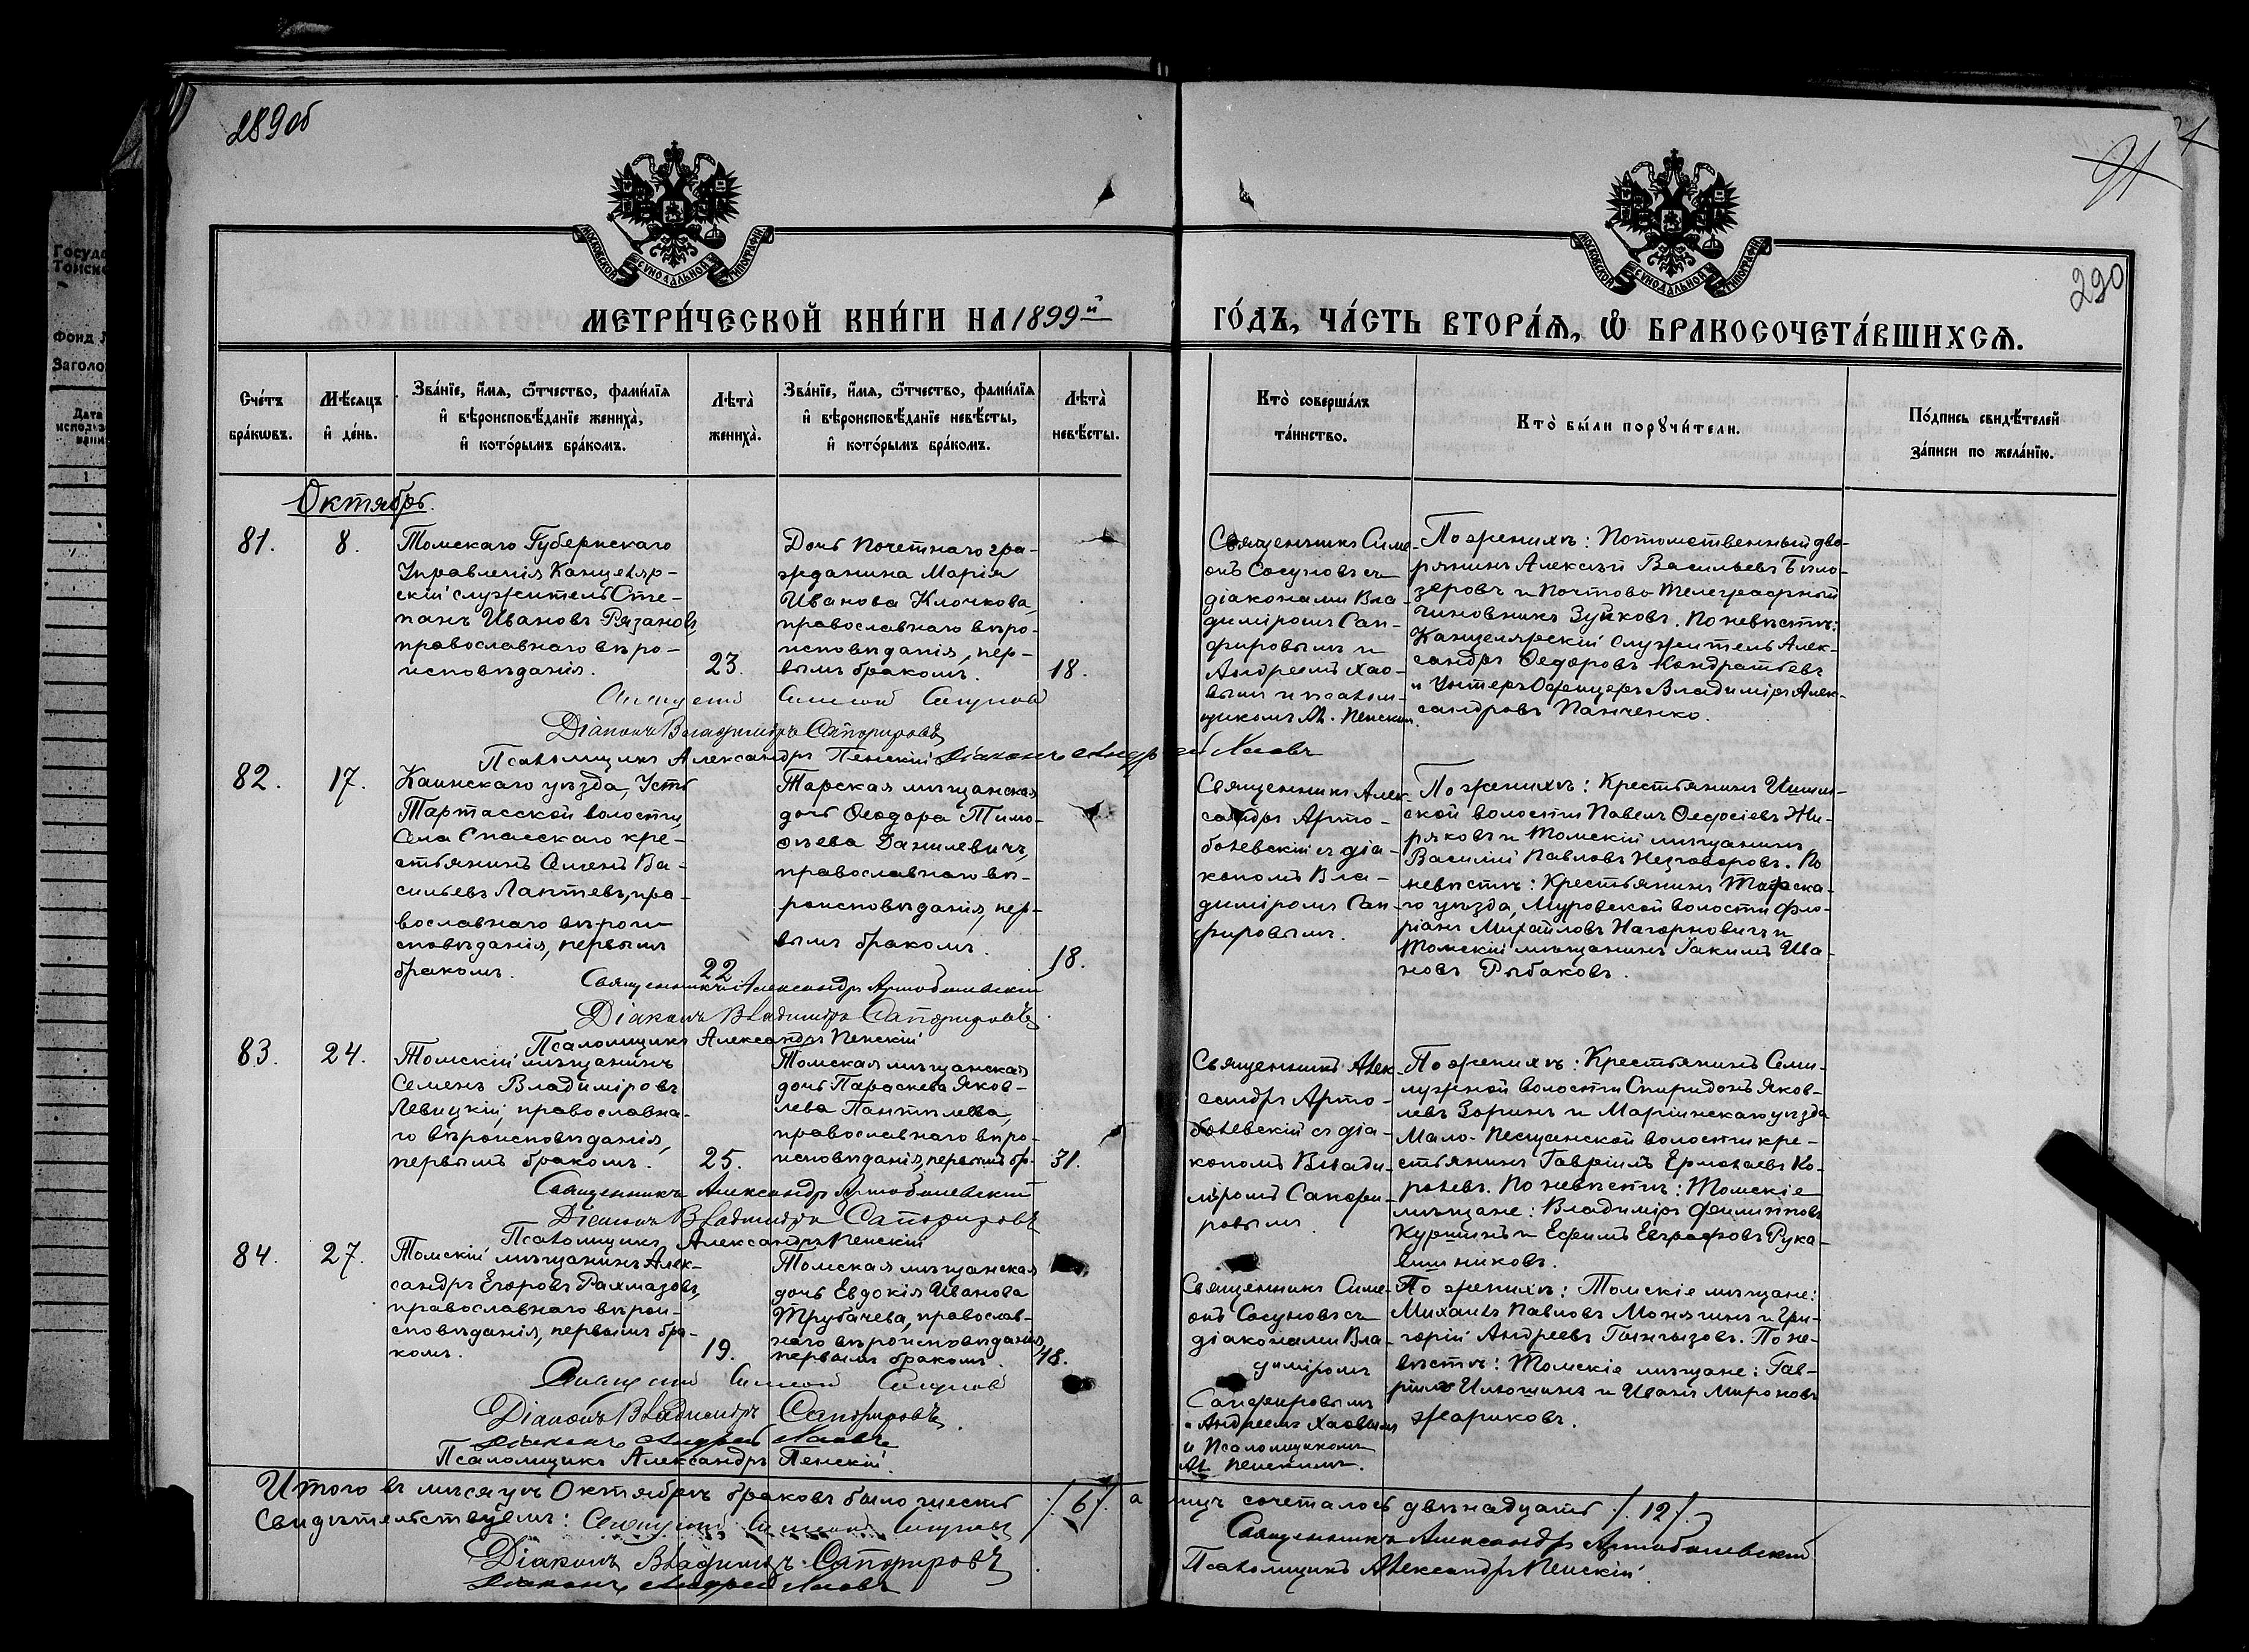 289об
91
290
МОСКОВСКОЙ СѴНОДАЛЬНОЙ ТИПОГРАФІИ
МОСКОВСКОЙ СѴНОДАЛЬНОЙ ТИПОГРАФІИ
МЕТРИ́ЧЕСКОЙ КНИ́ГИ НА 1899й
ГО́ДЪ, ЧА́СТЬ ВТОРА́Ѧ, Ѽ БРАКОСОЧЕТА́ВШИХСѦ.
Сче́тъ
бра́кѡвъ.
Мѣ́сѧцъ
и҆ де́нь.
Зва́нїе, и҆́мѧ, ѻ҆́тчество, фами́лїѧ
и҆ вѣроисповѣ́данїе жениха̀,
и҆ кото́рымъ бра́комъ.
Лѣта̀
жениха̀.
Зва́нїе, и҆́мѧ, ѻ҆́тчество, фами́лїѧ
и҆ вѣроисповѣ́данїе невѣ́сты,
и҆ кото́рымъ бра́комъ.
Лѣта̀
невѣ́сты.
Кто̀ соверша́лъ
та́инство.
Кто̀ бы́ли порꙋчи́тели.
По́дпись свидѣ́телей
за́писи по жела́нїю.
Октябрь.
81.
8.
Томскаго Губернскаго
Управленія Канцеляр-
скій служитель Сте-
панъ Ивановъ Рязановъ
православнаго вѣро-
исповѣданія.
23.
Дочь Почетнаго гра-
жданина Марія
Иванова Клочкова,
православнаго вѣро-
исповѣданія, пер-
вымъ бракомъ.
18.
Священникъ Симе-
онъ Сосуновъ съ
діаконами Вла-
диміромъ Сап-
фировымъ и
Андреемъ Хао-
вымъ и псалом-
щикомъ Ал. Пенскимъ.
По женихѣ: Потомственный дво-
рянинъ Алексѣй Васильевъ Бѣло-
зеровъ и Почтово Телеграфный
чиновникъ Зуйковъ. По невѣстѣ:
Канцелярскій служитель Алек-
сандръ Ѳедоровъ Кондратьевъ
и Унтеръ Офицеръ Владиміръ Алек-
сандровъ Панченко.
Священникъ Симеонъ Сосуновъ
Діаконъ Владиміръ Сапфировъ
Псаломщикъ Александръ Пенскій Діаконъ Андрей Хаовъ
82.
17.
Каинскаго уѣзда, Усть
Тартасской волости,
Села Спасскаго кре-
стьянинъ Семенъ Ва-
сильевъ Лаптевъ, пра-
вославнаго вѣрои-
сповѣданія, первымъ
бракомъ.
22
Тарская мѣщанская
дочь Ѳеодора Тимо-
ѳѣева Данилевичъ,
православнаго вѣ-
роисповѣданія, пер-
вымъ бракомъ.
18.
Священникъ Алек-
сандръ Арто-
болевскій съ діа-
кономъ Вла-
диміромъ Сап-
фировымъ.
По женихѣ: Крестьянинъ Ишим-
ской волости Павелъ Ѳедосіевъ Жи-
ряковъ и Томскій мѣщанинъ
Василій Павловъ Незговоровъ. По
невѣстѣ: Крестьянинъ Тарска-
го уѣзда, Муровской волости Фло-
ріанъ Михайловъ Нагорновичъ и
Томскій мѣщанинъ Іакимъ Ива-
новъ Рыбаковъ.
Священникъ Александръ Артоболевскій
Діаконъ Владиміръ Сапфировъ
Псаломщикъ Александръ Пенскій
83.
24.
Томскій мѣщанинъ
Семенъ Владиміровъ
Левицкій, православна-
го вѣроисповѣданія,
первымъ бракомъ.
25.
Томская мѣщанская
дочь Параскева Яков-
лева Пантѣлеева,
православнаго вѣро-
исповѣданія, первымъ бр.
31.
Священникъ Алек-
сандръ Арто-
болевскій съ діа-
кономъ Влади-
міромъ Сапфи-
ровымъ
По женихѣ: Крестьянинъ Семи-
лужной волости Спиридонъ Яков-
левъ Зоринъ и Маріинскаго уѣзда
Мало-Песчанской волости кре-
стьянинъ Гавріилъ Ермолаевъ Ко-
ролевъ. По невѣстѣ: Томскіе
мѣщане: Владиміръ Филипповъ
Куршинъ и Ефимъ Евграфовъ Рука-
вишниковъ.
Священникъ Александръ Артоболевскій
Діаконъ Владиміръ Сапфировъ
Псаломщикъ Александръ Пенскій
84.
27.
Томскій мѣщанинъ Алек-
сандръ Егоровъ Рахмазовъ,
православнаго вѣрои-
сповѣданія, первымъ бра-
комъ.
19.
Томская мѣщанская
дочь Евдокія Иванова
Трубачева, православ-
наго вѣроисповѣданія,
первымъ бракомъ.
18.
Священникъ Симе-
онъ Сосуновъ съ
діаконами Вла-
диміромъ
Сапфировымъ
и Андреемъ Хаовымъ
и Псаломщикомъ
Ал. Пенскимъ.
По женихѣ: Томскіе мѣщане:
Михаилъ Павловъ Монячинъ и Гри-
горій Андреевъ Гынгызовъ. По не-
вѣстѣ: Томскіе мѣщане: Гав-
ріилъ Илюшинъ и Иванъ Мироновъ
Жариковъ.
Священникъ Симеонъ Сосуновъ
Діаконъ Владиміръ Сапфировъ.
Діаконъ Андрей Хаовъ
Псаломщикъ Александръ Пенскій.
Итого въ мѣсяцѣ Октябрѣ браковъ было шесть /6/. а лицъ сочеталось двѣнадцать /12/.
Свидѣтельствуемъ: Священникъ Симеонъ Сосуновъ
Священникъ Александръ Артоболевскій
Діаконъ Владиміръ Сапфировъ
Псаломщикъ Александръ Пенскій.
Діаконъ Андрей Хаовъ
Госуда
Томско
Фонд
Заголо
Дата
1